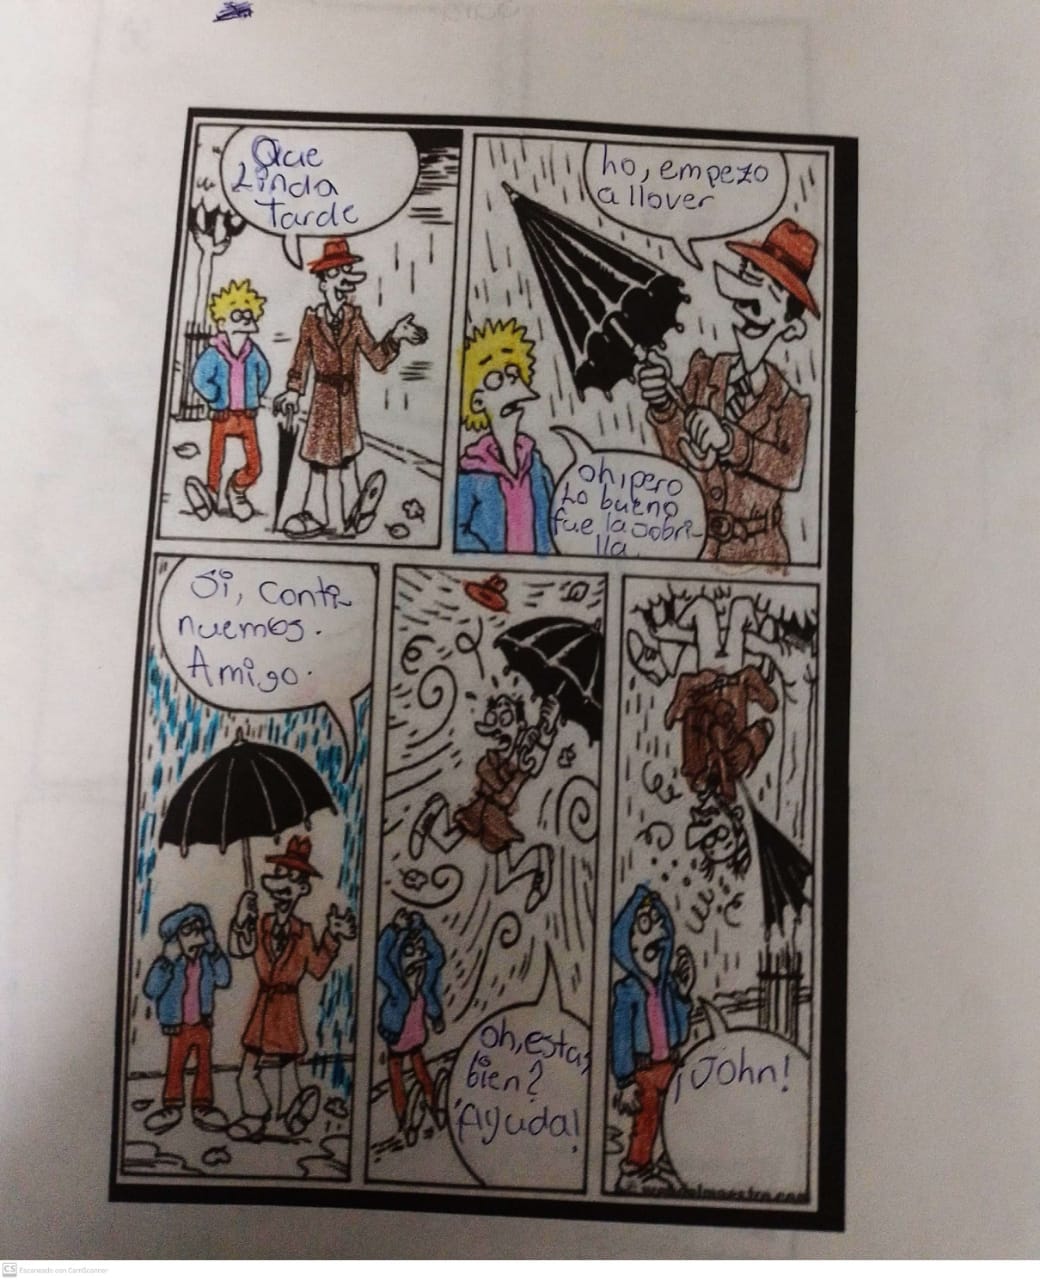 Que
Linda
tarde
ho, empezo
a llover
oh, pero
Lo bueno
fue la sobri-
lla
Si, conti-
nuemos.
Amigo.
oh, estas
bien?
¡Ayuda!
¡John!
CS Escaneado con CamScanner